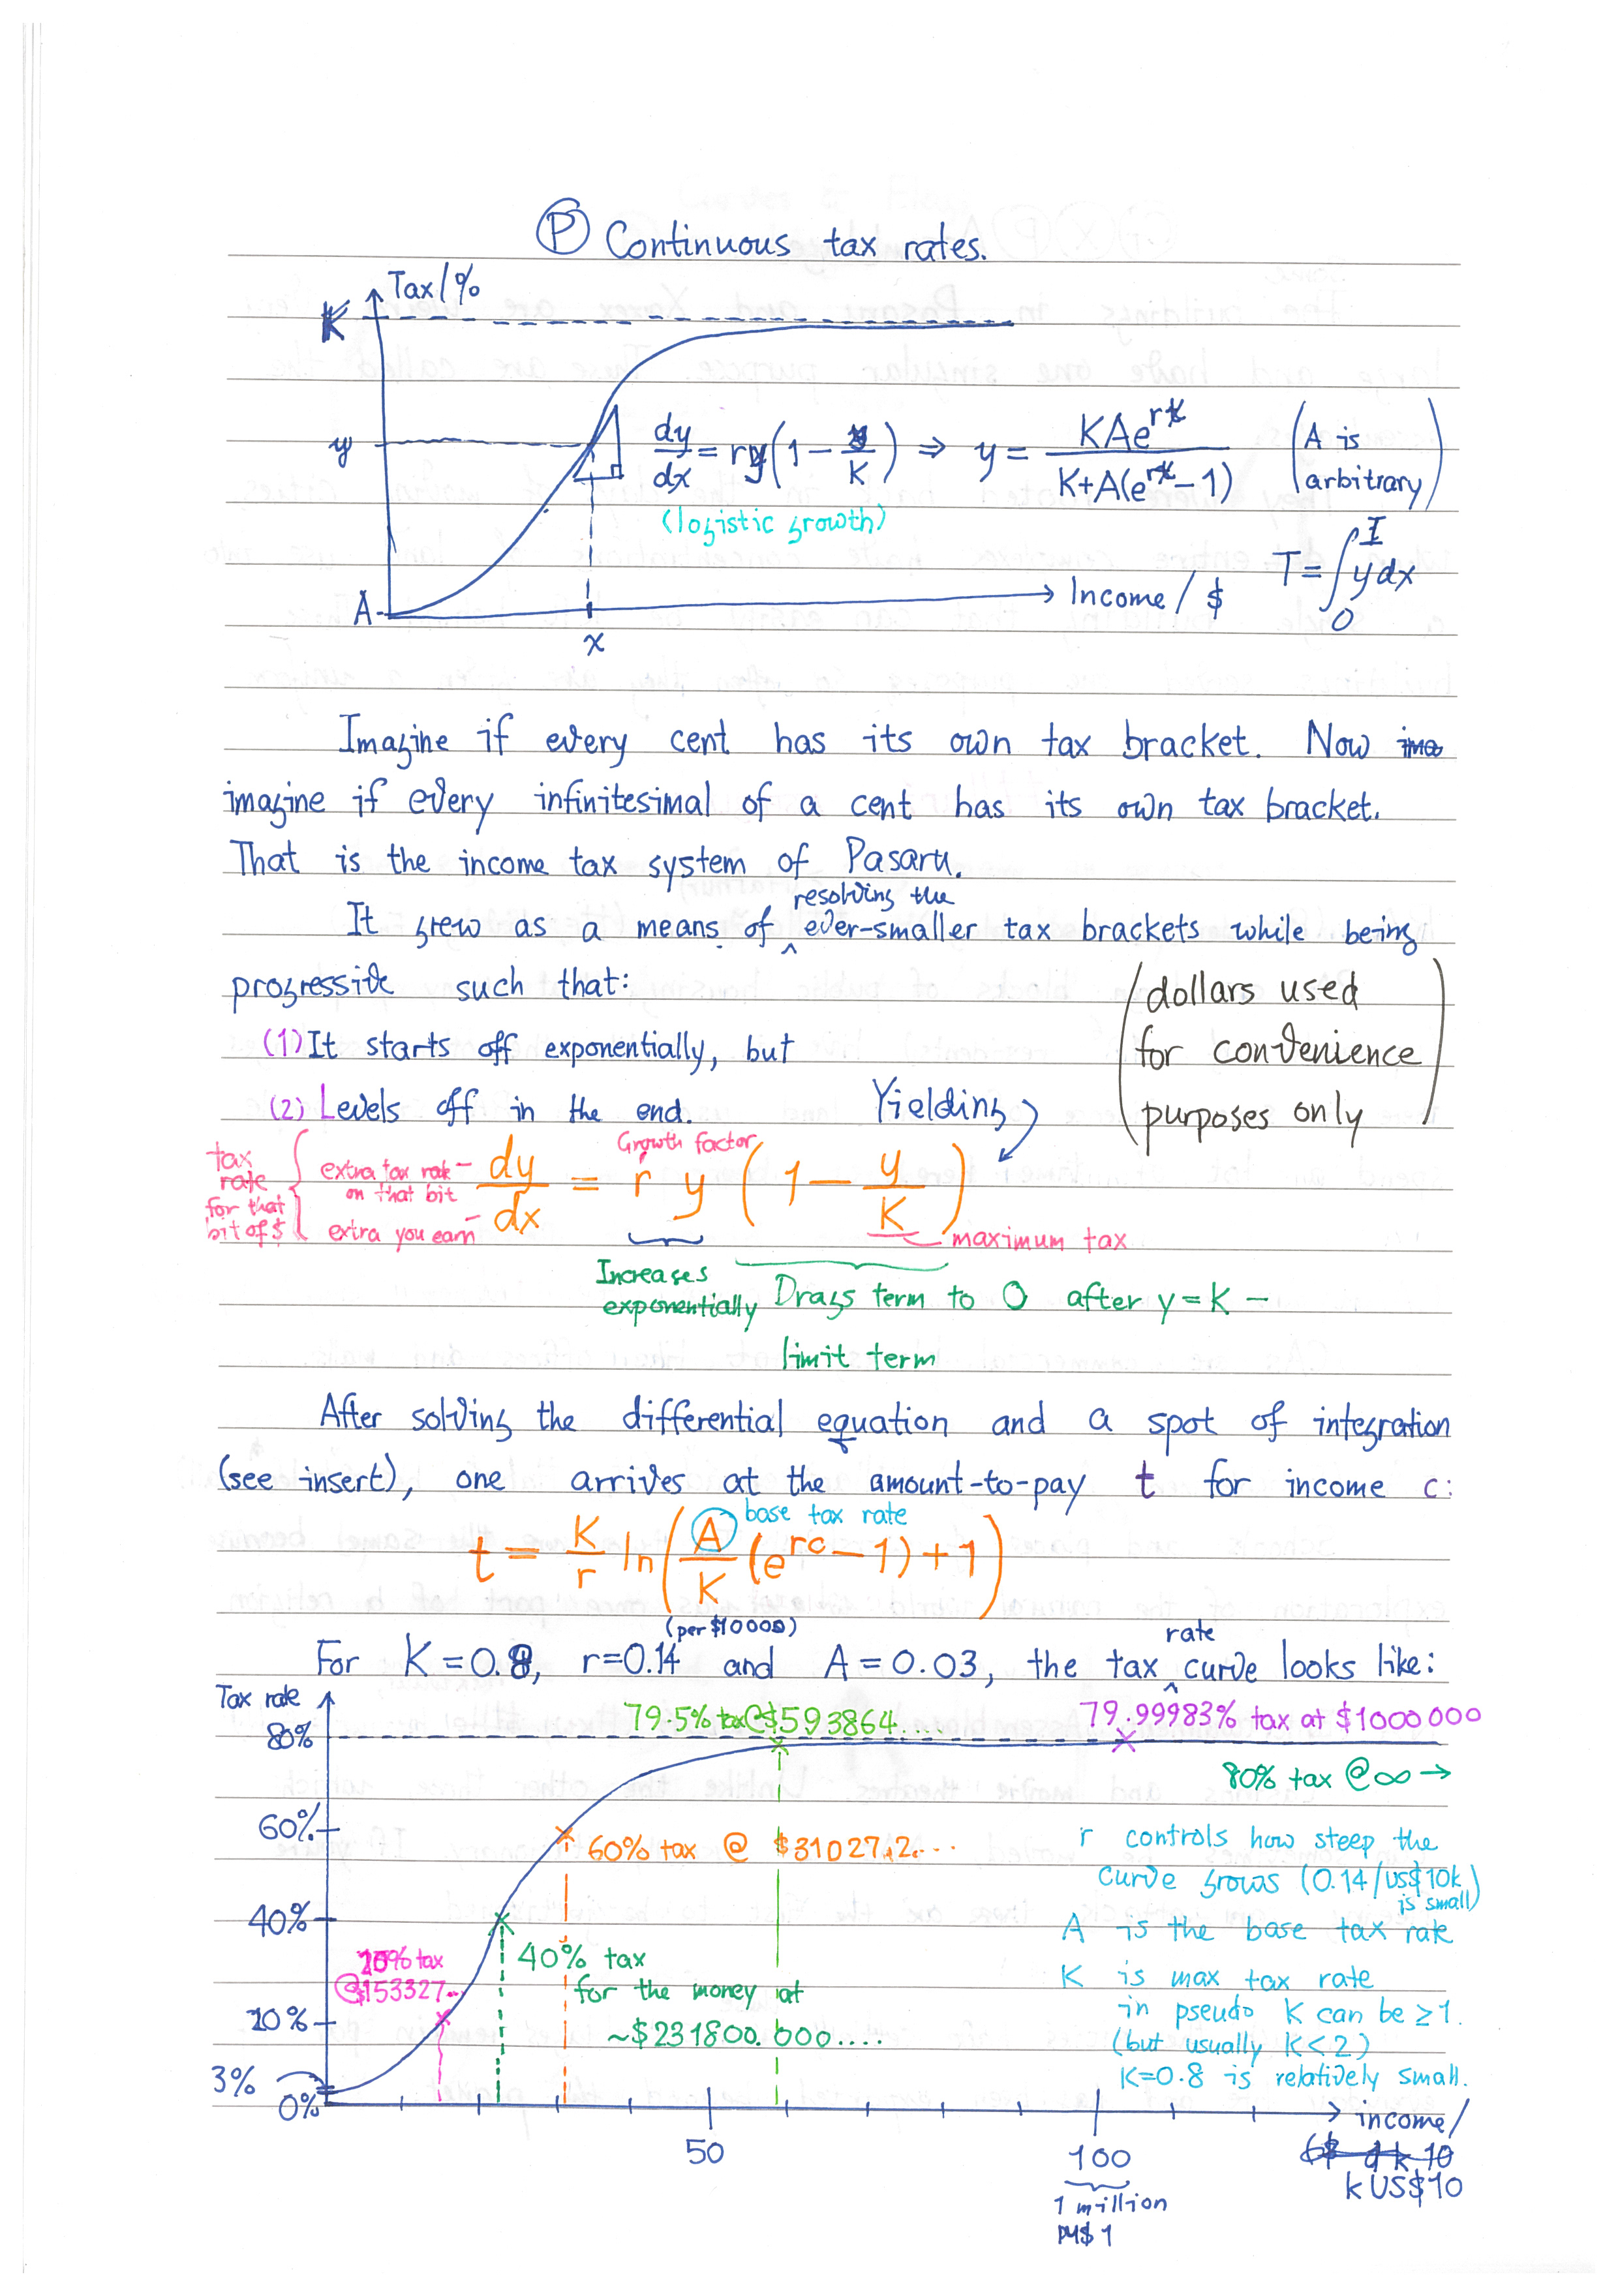 Ⓟ Continuous tax rates.
Tax/%
K
y
A
x
Income / $
dy/dx = ry(1 - y/K) ⇒ y = KAe^rx / K+A(e^rx - 1) (A is arbitrary)
(logistic growth)
T = ∫₀ᴵ y dx
Imagine if every cent has its own tax bracket. Now
imagine if every infinitesimal of a cent has its own tax bracket.
That is the income tax system of Pasaru.
It grew as a means of resolving the ever-smaller tax brackets while being
progressive such that:
(dollars used
for convenience
purposes only)
(1) It starts off exponentially, but
(2) Levels off in the end.
Yielding
tax rate for that bit of $
extra tax rate on that bit
extra you earn
Growth factor
dy/dx = r y (1 - y/K)
maximum tax
Increases exponentially
Drags term to 0 after y = K -
limit term
After solving the differential equation and a spot of integration
(see insert), one arrives at the amount-to-pay t for income c:
base tax rate
t = K/r ln(A/K (e^rc - 1) + 1)
(per $10000)
For K = 0.8, r = 0.14 and A = 0.03, the tax rate curve looks like:
Tax rate
80%
60%
40%
20%
3%
0%
79.5% tax @ $593864...
79.99983% tax at $1000000
80% tax @ ∞ →
60% tax @ $310272...
40% tax
for the money at
~$231800.000....
20% tax
@$153327...
r controls how steep the
curve grows (0.14/US$10k is small)
A is the base tax rate
K is max tax rate
in pseudo K can be ≥1.
(but usually K<2)
K=0.8 is relatively small.
50
100
1 million
PY$1
income/
k US$10